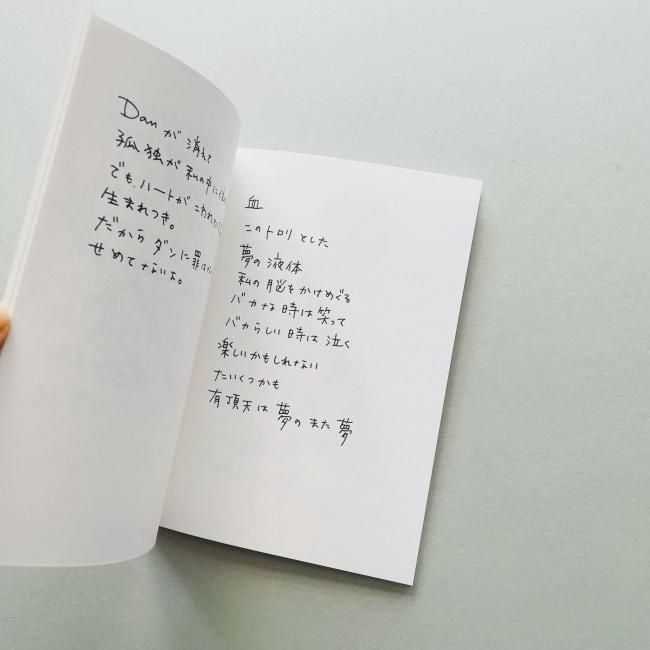 Danが消えて
孤独が私の中に
でも、ハートがこわれて
生まれつき。
だからダンに罪は
せめてないよ。
血
このトロリとした
夢の液体
私の脳をかけめぐる
バカな時は笑って
バカらしい時は泣く
楽しいかもしれない
たいくつかも
有頂天は夢のまた夢